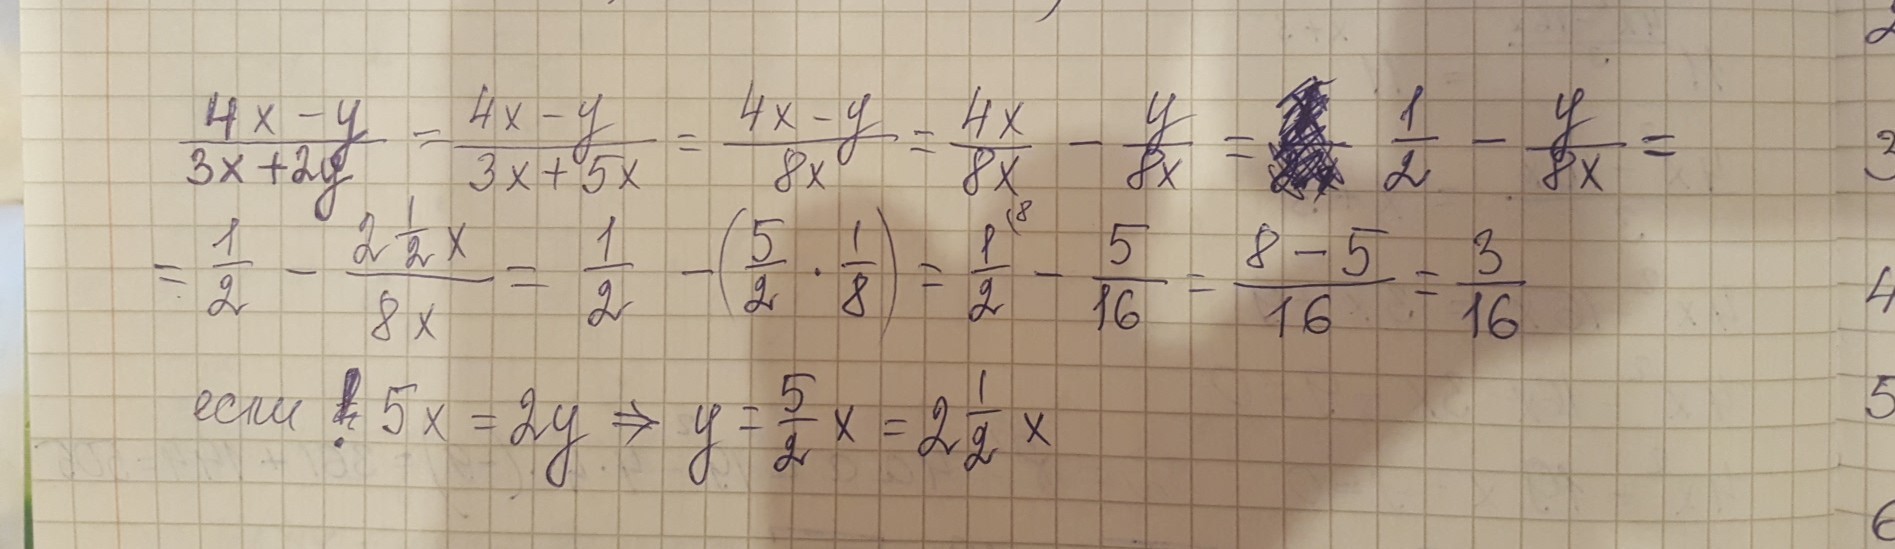 (4x-y)/(3x+2y) = (4x-y)/(3x+5x) = (4x-y)/(8x) = 4x/8x - y/8x = 1/2 - y/8x =
= 1/2 - (2 1/2 x)/(8x) = 1/2 - (5/2 · 1/8) = 1/2 (8 - 5/16 = (8-5)/16 = 3/16
если 5x = 2y ⇒ y = 5/2 x = 2 1/2 x
3
4
5
6